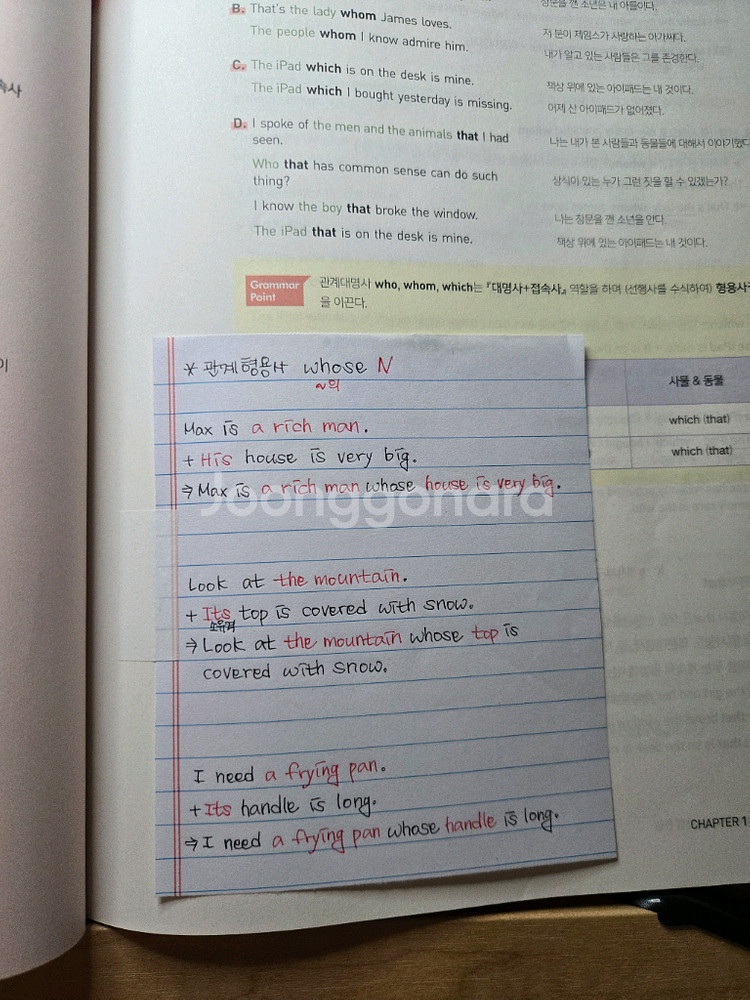 B. That's the lady whom James loves.
저 분이 제임스가 사랑하는 아가씨다.
The people whom I know admire him.
내가 알고 있는 사람들은 그를 존경한다.
C. The iPad which is on the desk is mine.
책상 위에 있는 아이패드는 내 것이다.
The iPad which I bought yesterday is missing.
어제 산 아이패드가 없어졌다.
D. I spoke of the men and the animals that I had
seen.
나는 내가 본 사람들과 동물들에 대해서 이야기했다
Who that has common sense can do such
thing?
상식이 있는 누가 그런 짓을 할 수 있겠는가?
I know the boy that broke the window.
나는 창문을 깬 소년을 안다.
The iPad that is on the desk is mine.
책상 위에 있는 아이패드는 내 것이다.
Grammar
Point
관계대명사 who, whom, which는 『대명사+접속사』 역할을 하며 (선행사를 수식하여) 형용사
을 이끈다.
사물 & 동물
which (that)
which (that)
* 관계형용사 whose N
~의
Max is a rich man.
+ His house is very big.
⇒ Max is a rich man whose house is very big.
Joonggonara
Look at the mountain.
+ Its top is covered with snow.
소유격
⇒ Look at the mountain whose top is
covered with snow.
I need a frying pan.
+ Its handle is long.
⇒ I need a frying pan whose handle is long.
CHAPTER 1